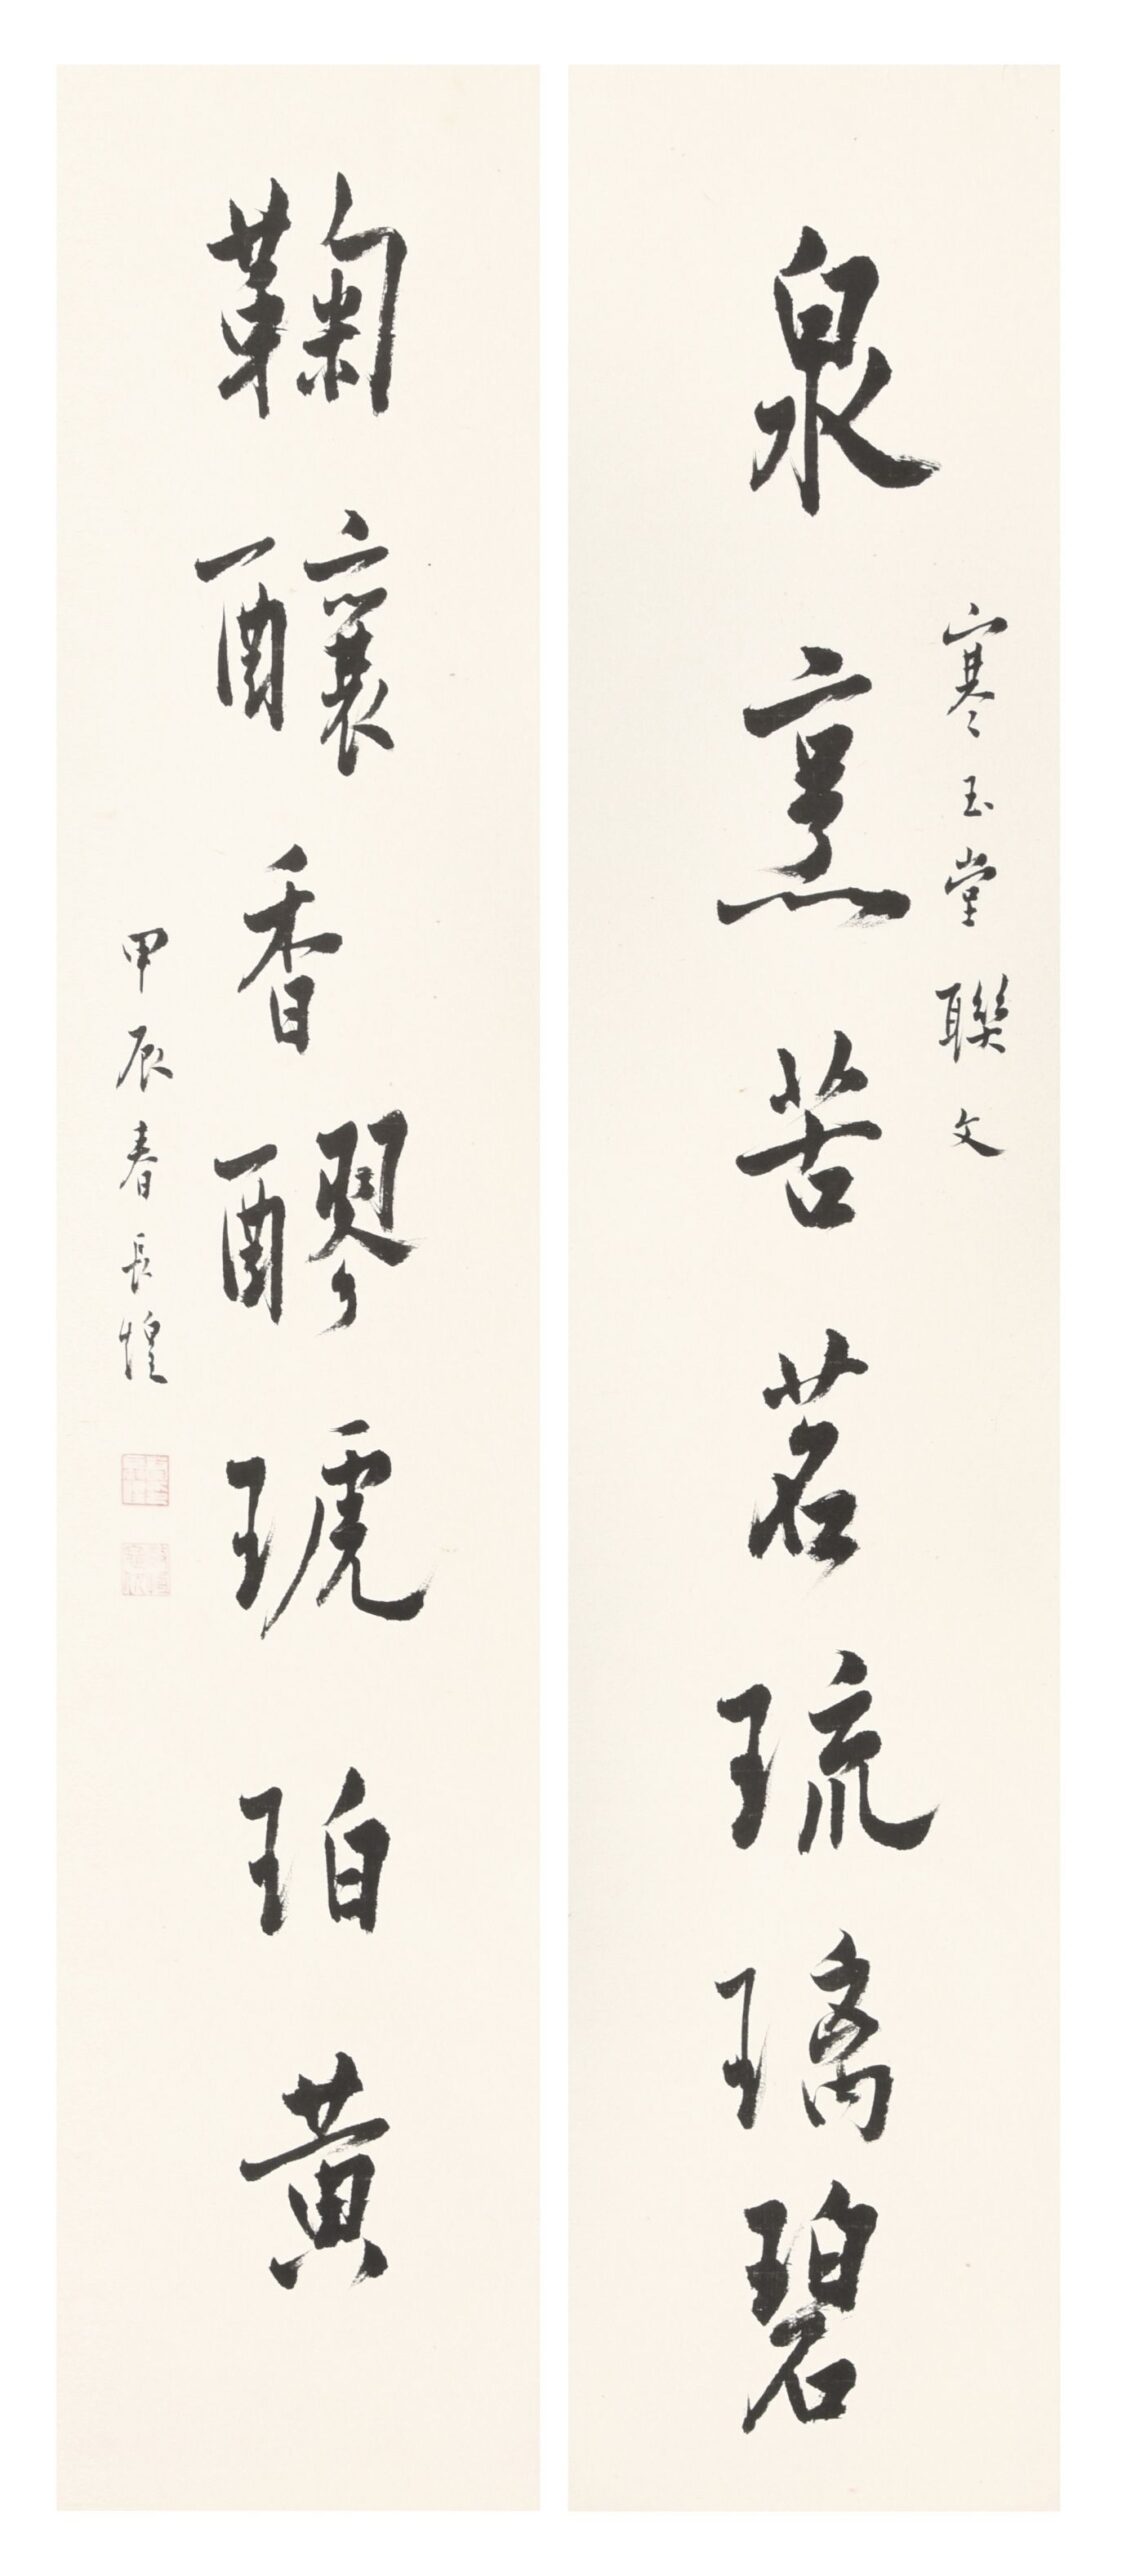 泉烹苦茗琉璃碧
寒玉堂聯文
鞠釀香醪琥珀黃
甲辰春長煌